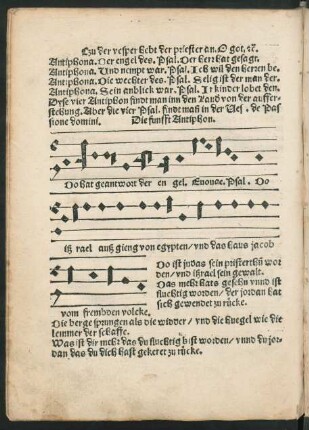 Czu der vesper hebt der priester an. O got, ꝛc.
Antiphona. Der engel des. Psal. Der herr hat gesagt.
Antiphona. Und nempt war. Psal. Ich wil den herren be.
Antiphona. Die wechter des. Psal. Selig ist der man der.
Antiphona. Sein anblick war. Psal. Ir kinder lobet den.
Dyse vier Antiphon findt man inn den Laud von der auffer-
stehung. Aber die vier Psal. findt man in der Ves. de Pas
sione domini. Die funfft Antiphon.
Do hat geantwort der en gel. Euouae. Psal. Do
itz rael auß gieng von egypten/ vnd das haus jacob
vom frembden volcke.
Do ist judas sein priesterthũ wor
den/ vnd ißrael sein gewalt.
Das mehr hats gesehn vnnd ist
fluchtig worden/ der jordan hat
sich gewendet zu rücke.
Die berge sprungen als die widder/ vnd die huegel wie die
lemmer der schaffe.
Was ist dir mehr das du fluchtig bist worden/ vnnd du jor-
dan das du dich hast gekeret zu rücke.